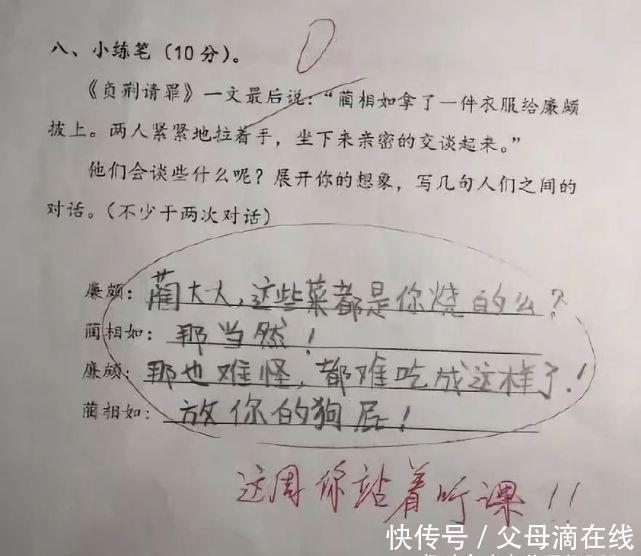 八、小练笔(10分)。
《负荆请罪》一文最后说:“蔺相如拿了一件衣服给廉颇
披上。两人紧紧地拉着手,坐下来亲密的交谈起来。”
他们会谈些什么呢?展开你的想象,写几句人们之间的
对话。(不少于两次对话)
廉颇:蔺大人,这些菜都是你烧的么?
蔺相如:那当然!
廉颇:那也难怪,都难吃成这样了!
蔺相如:放你的狗屁!
这周你站着听课!!
快传号/父母滴在线